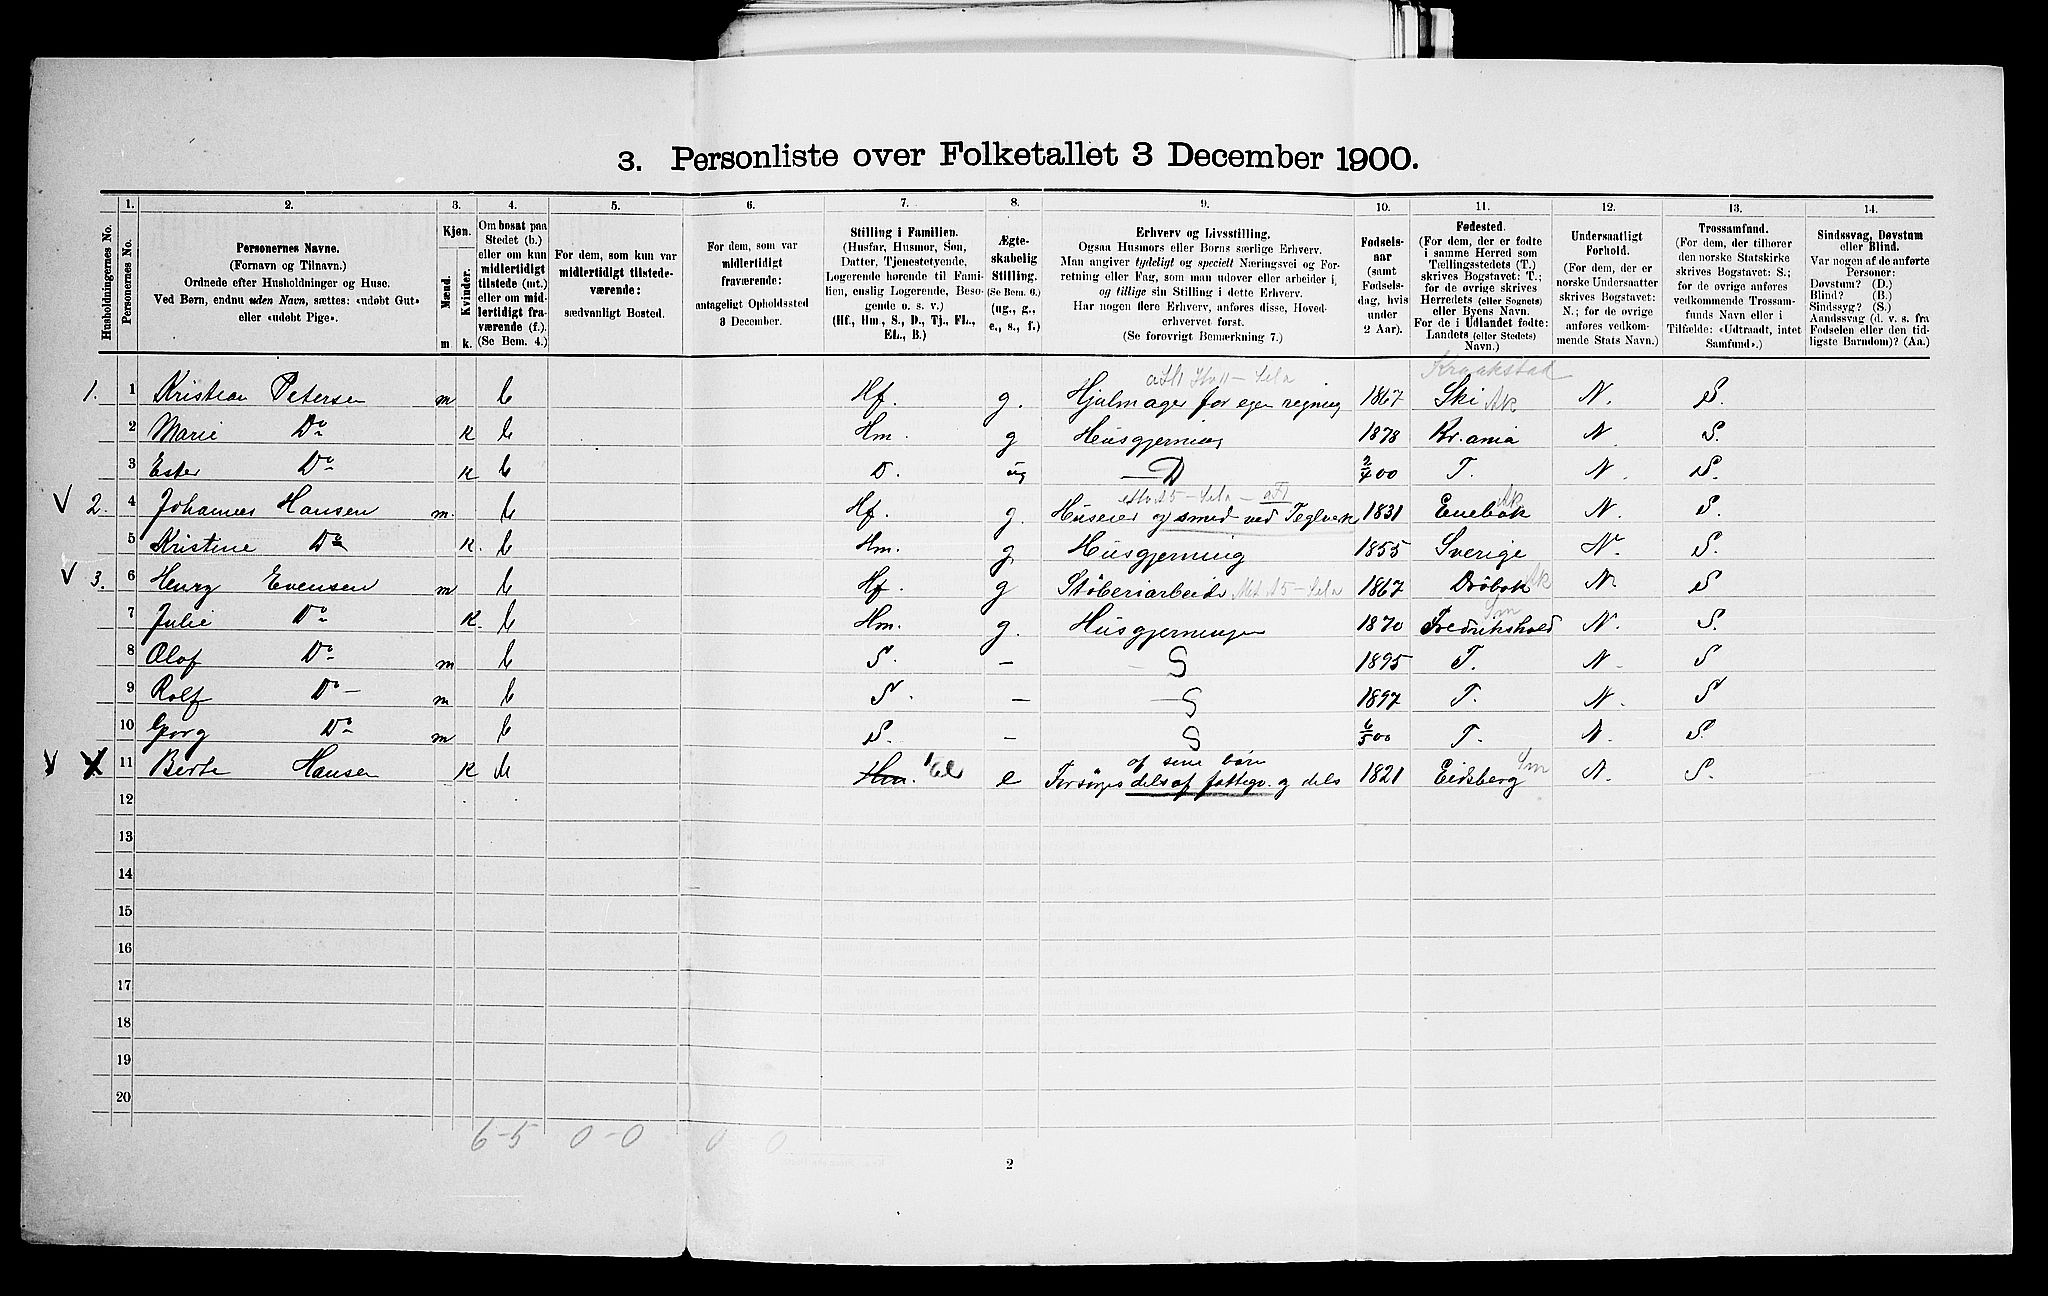 3. Personliste over Folketallet 3 December 1900.
1. 2. 3. 4. 5. 6. 7. 8. 9. 10. 11. 12. 13. 14.
Husholdningernes No.
Personernes No.
Personernes Navne.
(Fornavn og Tilnavn.)
Ordnede efter Husholdninger og Huse.
Ved Børn, endnu uden Navn, sættes: «udøbt Gut»
eller «udøbt Pige».
Kjøn.
Mænd.
Kvinder.
m. k.
Om bosat paa
Stedet (b.)
eller om kun
midlertidigt
tilstede (mt.)
eller om mid-
lertidigt fra-
værende (f.)
(Se Bem. 4.)
For dem, som kun var
midlertidigt tilstede-
værende:
sædvanligt Bosted.
For dem, som var
midlertidigt
fraværende:
antageligt Opholdssted
3 December.
Stilling i Familien.
(Husfar, Husmor, Søn,
Datter, Tjenestetyende,
Logerende hørende til Fami-
lien, enslig Logerende, Besø-
gende o. s. v.)
(Hf., Hm., S., D., Tj., FL.,
EL., B.)
Ægte-
skabelig
Stilling.
(Se Bem. 6.)
(ug., g.,
e., s., f.)
Erhverv og Livsstilling.
Ogsaa Husmors eller Børns særlige Erhverv.
Man angiver tydeligt og specielt Næringsvei og For-
retning eller Fag, som man udøver eller arbeider i,
og tillige sin Stilling i dette Erhverv.
Har nogen flere Erhverv, anføres disse, Hoved-
erhvervet først.
(Se forøvrigt Bemærkning 7.)
Fødsels-
aar
(samt
Fødsels-
dag, hvis
under
2 Aar).
Fødested.
(For dem, der er fødte
i samme Herred som
Tællingsstedets (T.)
skrives Bogstavet: T.;
for de øvrige skrives
Herredets (eller Sognets)
eller Byens Navn.
For de i Udlandet fødte:
Landets (eller Stedets)
Navn.)
Undersaatligt
Forhold.
(For dem, der er
norske Undersaatter
skrives Bogstavet:
N.; for de øvrige
anføres vedkom-
mende Stats Navn.)
Trossamfund.
(For dem, der tilhører
den norske Statskirke
skrives Bogstavet: S.;
for de øvrige anføres
vedkommende Trossam-
funds Navn eller i
Tilfælde: «Udtraadt, intet
Samfund».)
Sindssvag, Døvstum
eller Blind.
Var nogen af de anførte
Personer:
Døvstum? (D.)
Blind? (B.)
Sindssyg? (S.)
Aandssvag (d. v. s. fra
Fødselen eller den tid-
ligste Barndom)? (Aa.)
Kraakstad
1. 1 Kristian Petersen m b Hf. g. Hjulmager for egen regning 1867 Ski Ak N. S.
2 Marie Do k b Hm. g Husgjerning 1878 Kr.ania N S.
3 Ester Do k b D. ug D 2/4 00 T. N. S.
V 2. 4 Johannes Hansen m. b Hf. g. Huseier og smed ved Teglverk 1831 Enebak Ak N. S.
5 Kristine Do k. b Hm. g Husgjerning 1855 Sverige N. S.
V 3. 6 Henry Evensen m b Hf. g Støberiarbeide 1867 Drøbak Ak N. S
7 Julie Do k. b Hm. g. Husgjerningen 1870 Fredrikshald Sm N. S.
8 Olaf Do m b S. – S 1895 T. N. S
9 Rolf Do – m b S. – S 1897 T. N. S
10 Georg Do m b S. – S 6/5 00 T. N. S.
af sine børn
V 11 Berte Hansen k b Hm. El e Forsørges dels af fattigv. og dels 1821 Eidsberg Sm N. S.
12
13
14
15
16
17
18
19
20
6-5 0-0 0 0
2